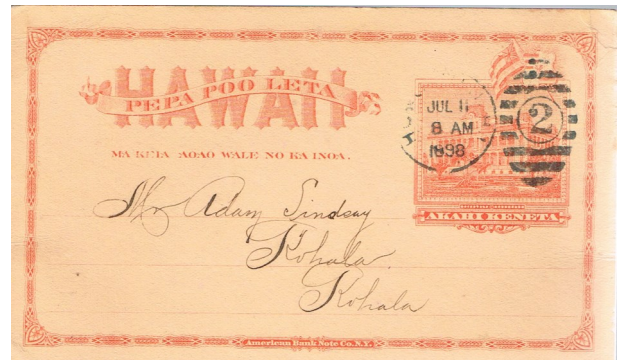 HAWAII
PEPA POO LETA
MA KEIA AOAO WALE NO KA INOA.
JUL 11
8 AM
1898
2
AKAHI KENETA
Mr Adam Lindsay
Kohala
Kohala
American Bank Note Co. N.Y.